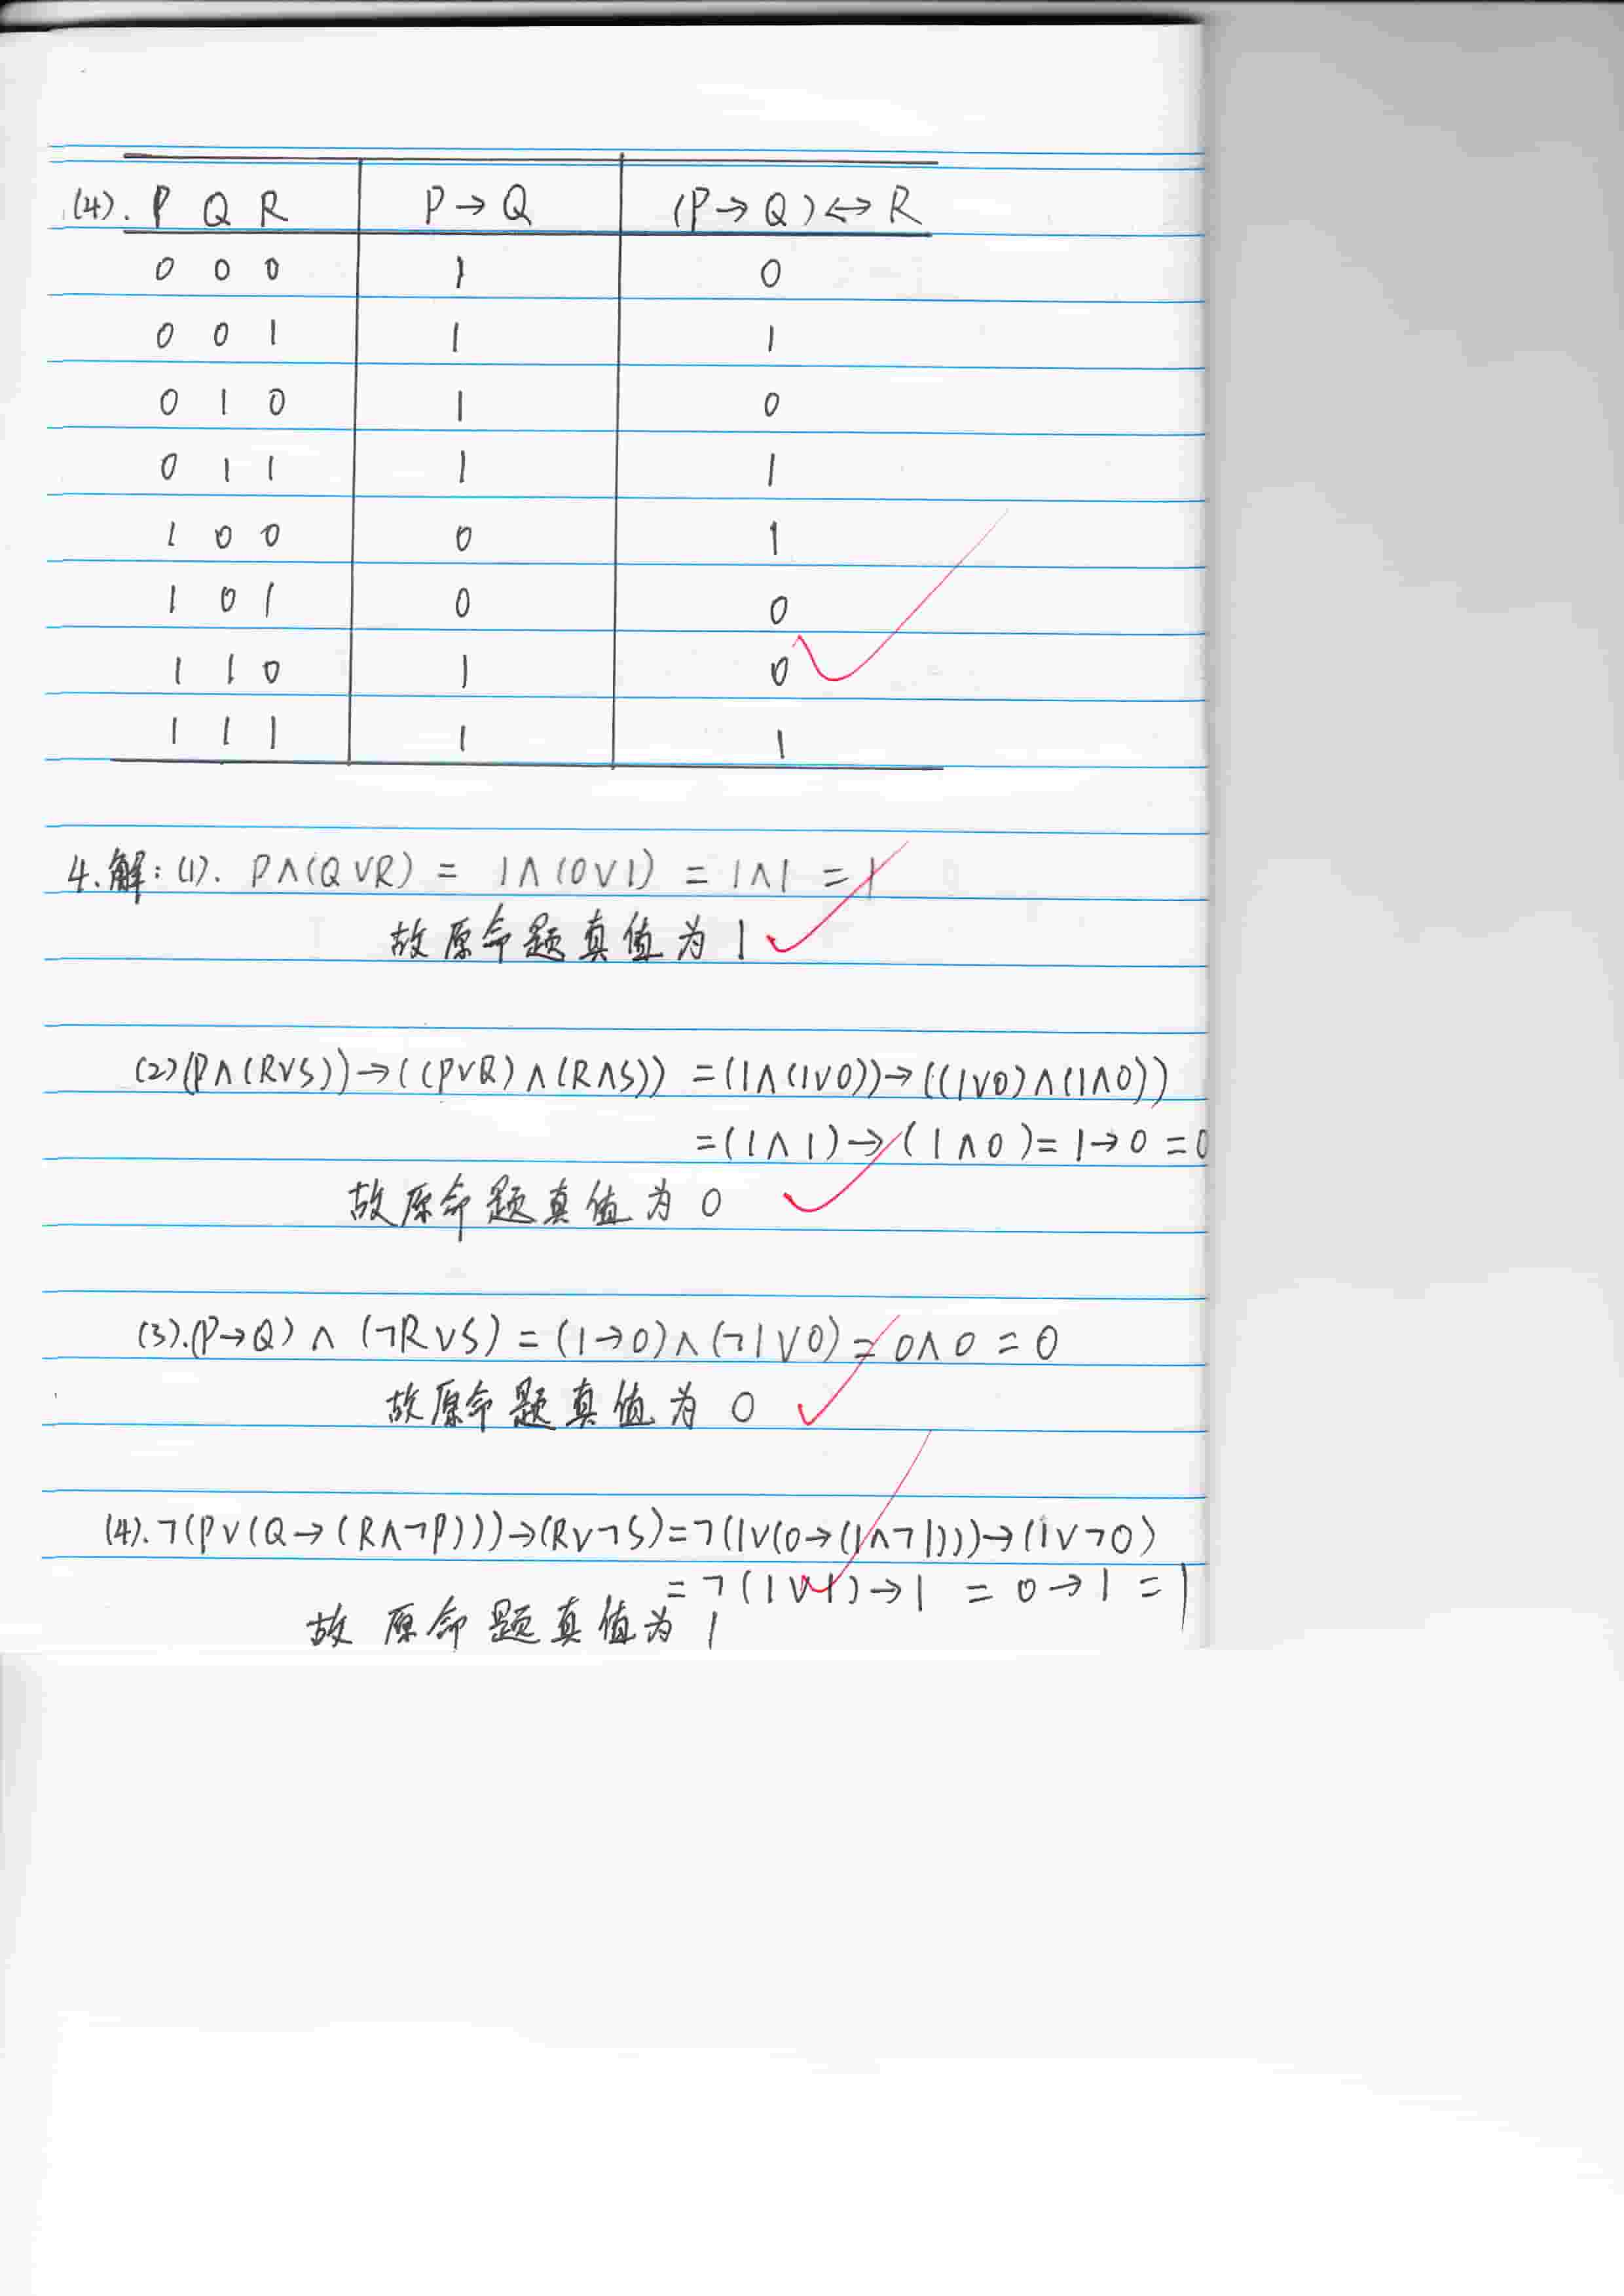 (4). P Q R P→Q (P→Q)↔R
0 0 0 1 0
0 0 1 1 1
0 1 0 1 0
0 1 1 1 1
1 0 0 0 1
1 0 1 0 0
1 1 0 1 0
1 1 1 1 1
4.解:(1). P∧(Q∨R) = 1∧(0∨1) = 1∧1 = 1
故原命题真值为1
(2)(P∧(R∨S))→((P∨Q)∧(R∧S)) =(1∧(1∨0))→((1∨0)∧(1∧0))
=(1∧1)→(1∧0)=1→0=0
故原命题真值为0
(3).(P→Q)∧(¬R∨S)=(1→0)∧(¬1∨0)=0∧0=0
故原命题真值为0
(4).¬(P∨(Q→(R∧¬P)))→(R∨¬S)=¬(1∨(0→(1∧¬1)))→(1∨¬0)
=¬(1∨1)→1 = 0→1 =1
故原命题真值为1